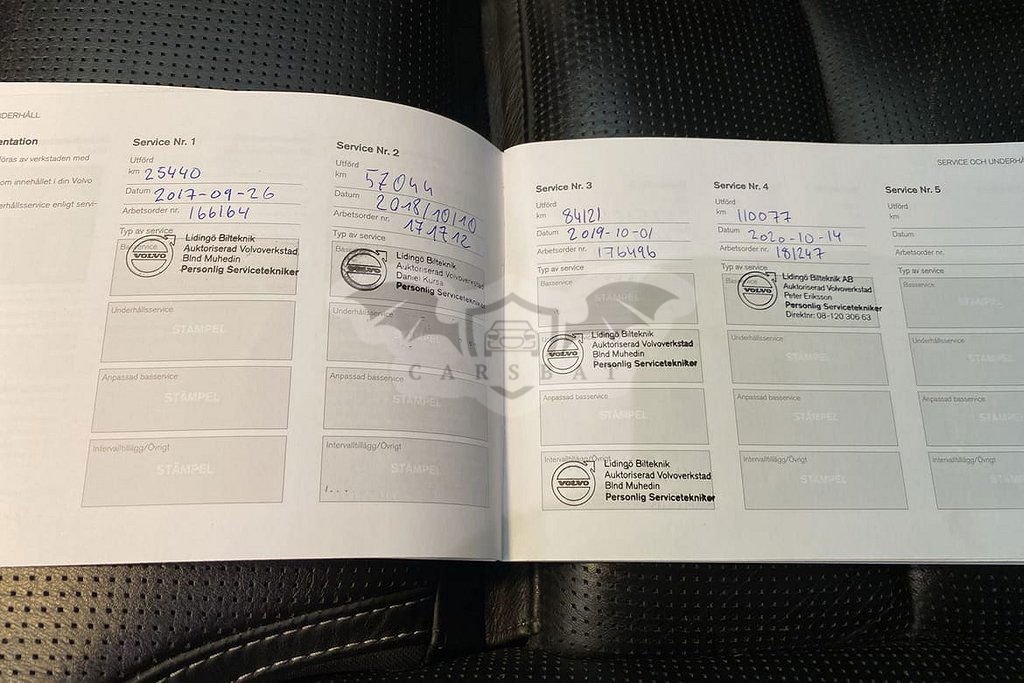 DERHÅLL
entation
föras av verkstaden med
om innehållet i din Volvo
erhållsservice enligt servi-
Service Nr. 1
Utförd
km 25440
Datum 2017-09-26
Arbetsorder nr. 166164
Typ av service
VOLVO
Lidingö Bilteknik
Auktoriserad Volvoverkstad
Blnd Muhedin
Personlig Servicetekniker
Underhållsservice
STÄMPEL
Anpassad basservice
STÄMPEL
Intervalltillägg/Övrigt
STÄMPEL
Service Nr. 2
Utförd
km 57044
Datum 2018/10/10
Arbetsorder nr. 171712
Typ av service
Basservice
VOLVO
Lidingö Bilteknik
Auktoriserad Volvoverkstad
Daniel Kursa
Personlig Servicetekniker
Underhållsservice
STÄMPEL
Anpassad basservice
STÄMPEL
Intervalltillägg/Övrigt
STÄMPEL
CARSBAT
SERVICE OCH UNDERHÅ
Service Nr. 3
Utförd
km 84121
Datum 2019-10-01
Arbetsorder nr. 176496
Typ av service
Basservice
STÄMPEL
VOLVO
Lidingö Bilteknik
Auktoriserad Volvoverkstad
Blnd Muhedin
Personlig Servicetekniker
Anpassad basservice
STÄMPEL
Intervalltillägg/Övrigt
VOLVO
Lidingö Bilteknik
Auktoriserad Volvoverkstad
Blnd Muhedin
Personlig Servicetekniker
Service Nr. 4
Utförd
km 110077
Datum 2020-10-14
Arbetsorder nr. 181247
Typ av service
VOLVO
Lidingö Bilteknik AB
Auktoriserad Volvoverkstad
Peter Eriksson
Personlig Servicetekniker
Direktnr: 08-120 306 63
Underhållsservice
STÄMPEL
Anpassad basservice
STÄMPEL
Intervalltillägg/Övrigt
STÄMPEL
Service Nr. 5
Utförd
km
Datum
Arbetsorder nr.
Typ av service
Basservice
STÄMPEL
Underhållsservice
STÄMPEL
Anpassad basservice
STÄMPEL
Intervalltillägg/Övrigt
STÄMPEL